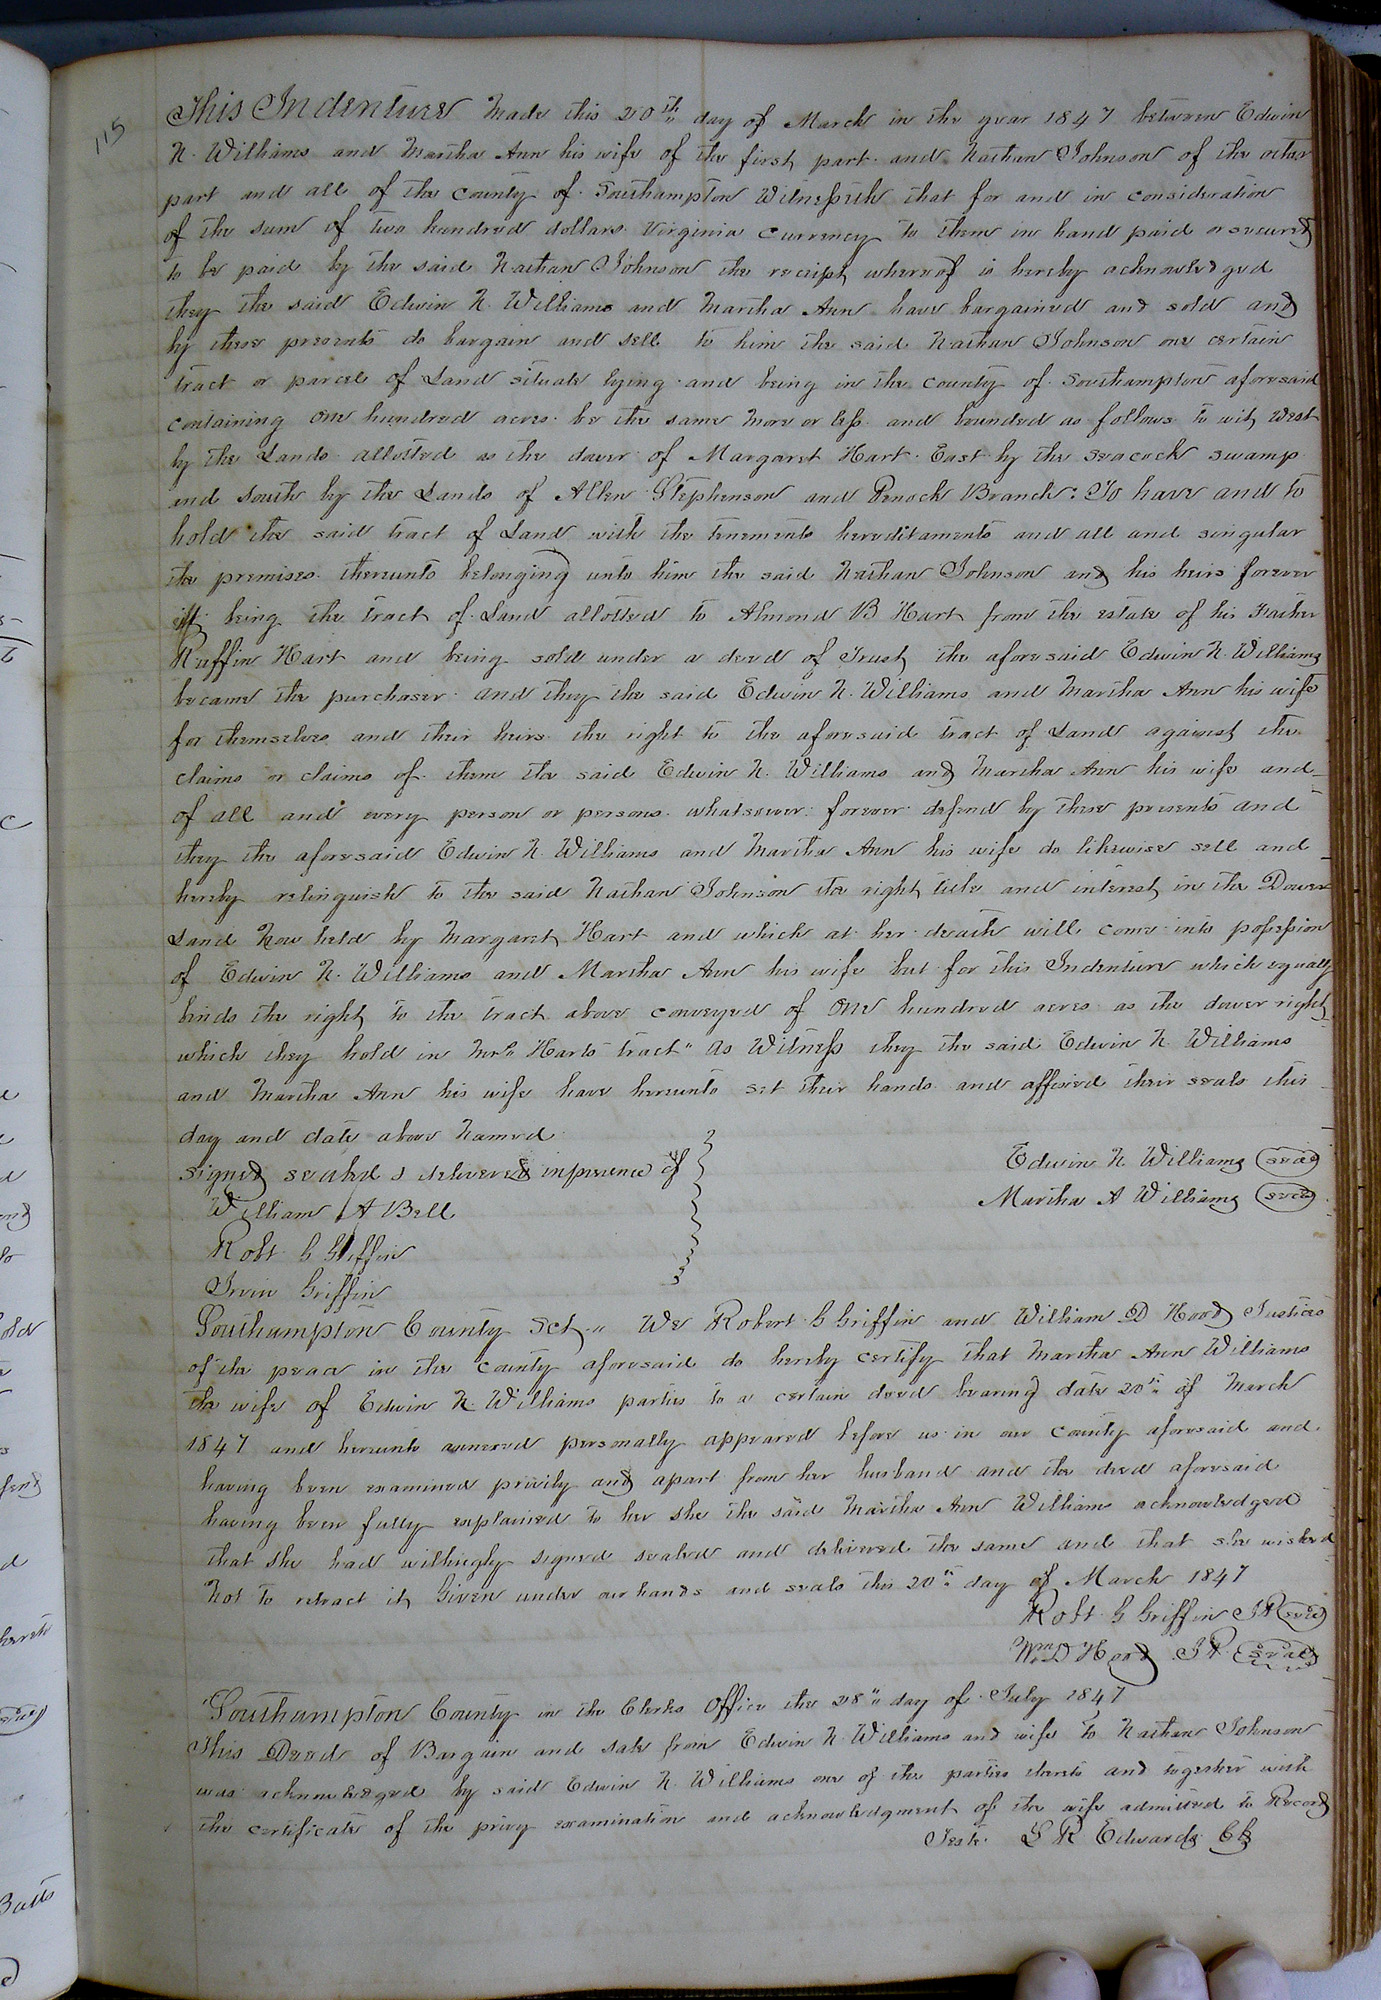 115
This Indenture Made this 20th day of March in the year 1847 between Edwin
N. Williams and Martha Ann his wife of the first part and Nathan Johnson of the other
part and all of the County of Southampton Witnesseth that for and in consideration
of the sum of two hundred dollars Virginia Currency to them in hand paid or secured
to be paid by the said Nathan Johnson the receipt whereof is hereby acknowledged
they the said Edwin N. Williams and Martha Ann have bargained and sold and
by these presents do bargain and sell to him the said Nathan Johnson one certain
tract or parcel of Land situate lying and being in the County of Southampton aforesaid
containing One hundred acres be the same More or less and bounded as follows to wit, West
by the Lands allotted as the dower of Margaret Hart East by the Seacock swamp
and South by the Lands of Allen Stephenson and Penock Branch. To have and to
hold the said tract of Land with the tenements hereditaments and all and singular
the premises thereunto belonging unto him the said Nathan Johnson and his heirs forever
it being the tract of Land allotted to Almond B Hart from the estate of his Father
Ruffin Hart and being sold under a deed of Trust, the aforesaid Edwin N. Williams
became the purchaser and they the said Edwin N. Williams and Martha Ann his wife
for themselves and their heirs the right to the aforesaid tract of Land against the
claims or claims of them the said Edwin N. Williams and Martha Ann his wife and
of all and every person or persons whatsoever forever defend by these presents and
they the aforesaid Edwin N. Williams and Martha Ann his wife do likewise sell and
hereby relinquish to the said Nathan Johnson the right title and interest in the Dower
Land Now held by Margaret Hart and which at her death will come into possession
of Edwin N. Williams and Martha Ann his wife but for this Indenture which equally
binds the right to the tract above conveyed of One hundred acres as the dower right
which they hold in Mrs" Harts tract" As Witness they the said Edwin N. Williams
and Martha Ann his wife have hereunto set their hands and affixed their seals this
day and date above Named
Signed sealed & delivered in presence of
Edwin N Williams seal
William A Bell
Martha A Williams seal
Robt G Griffin
Irvin Griffin
Southampton County Sct" We Robert G Griffin and William D Hood Justices
of the peace in the County aforesaid do hereby certify that Martha Ann Williams
the wife of Edwin N. Williams parties to a certain deed bearing date 20th of March
1847 and hereunto annexed personally appeared before us in our County aforesaid and
having been examined privily and apart from her husband and the deed aforesaid
having been fully explained to her she the said Martha Ann Williams acknowledged
that she had willingly signed sealed and delivered the same and that she wished
Not to retract it, Given under our hands and seals this 20th day of March 1847
Robt G Griffin JP seal
Wm D Hood JP. seal
Southampton County in the Clerks Office the 28" day of July 1847
This Deed of Bargain and sale from Edwin N. Williams and wife to Nathan Johnson
was acknowledged by said Edwin N. Williams one of the parties thereto and together with
the certificate of the privy examination and acknowledgment of the wife admitted to Record
Teste. L R Edwards Clk